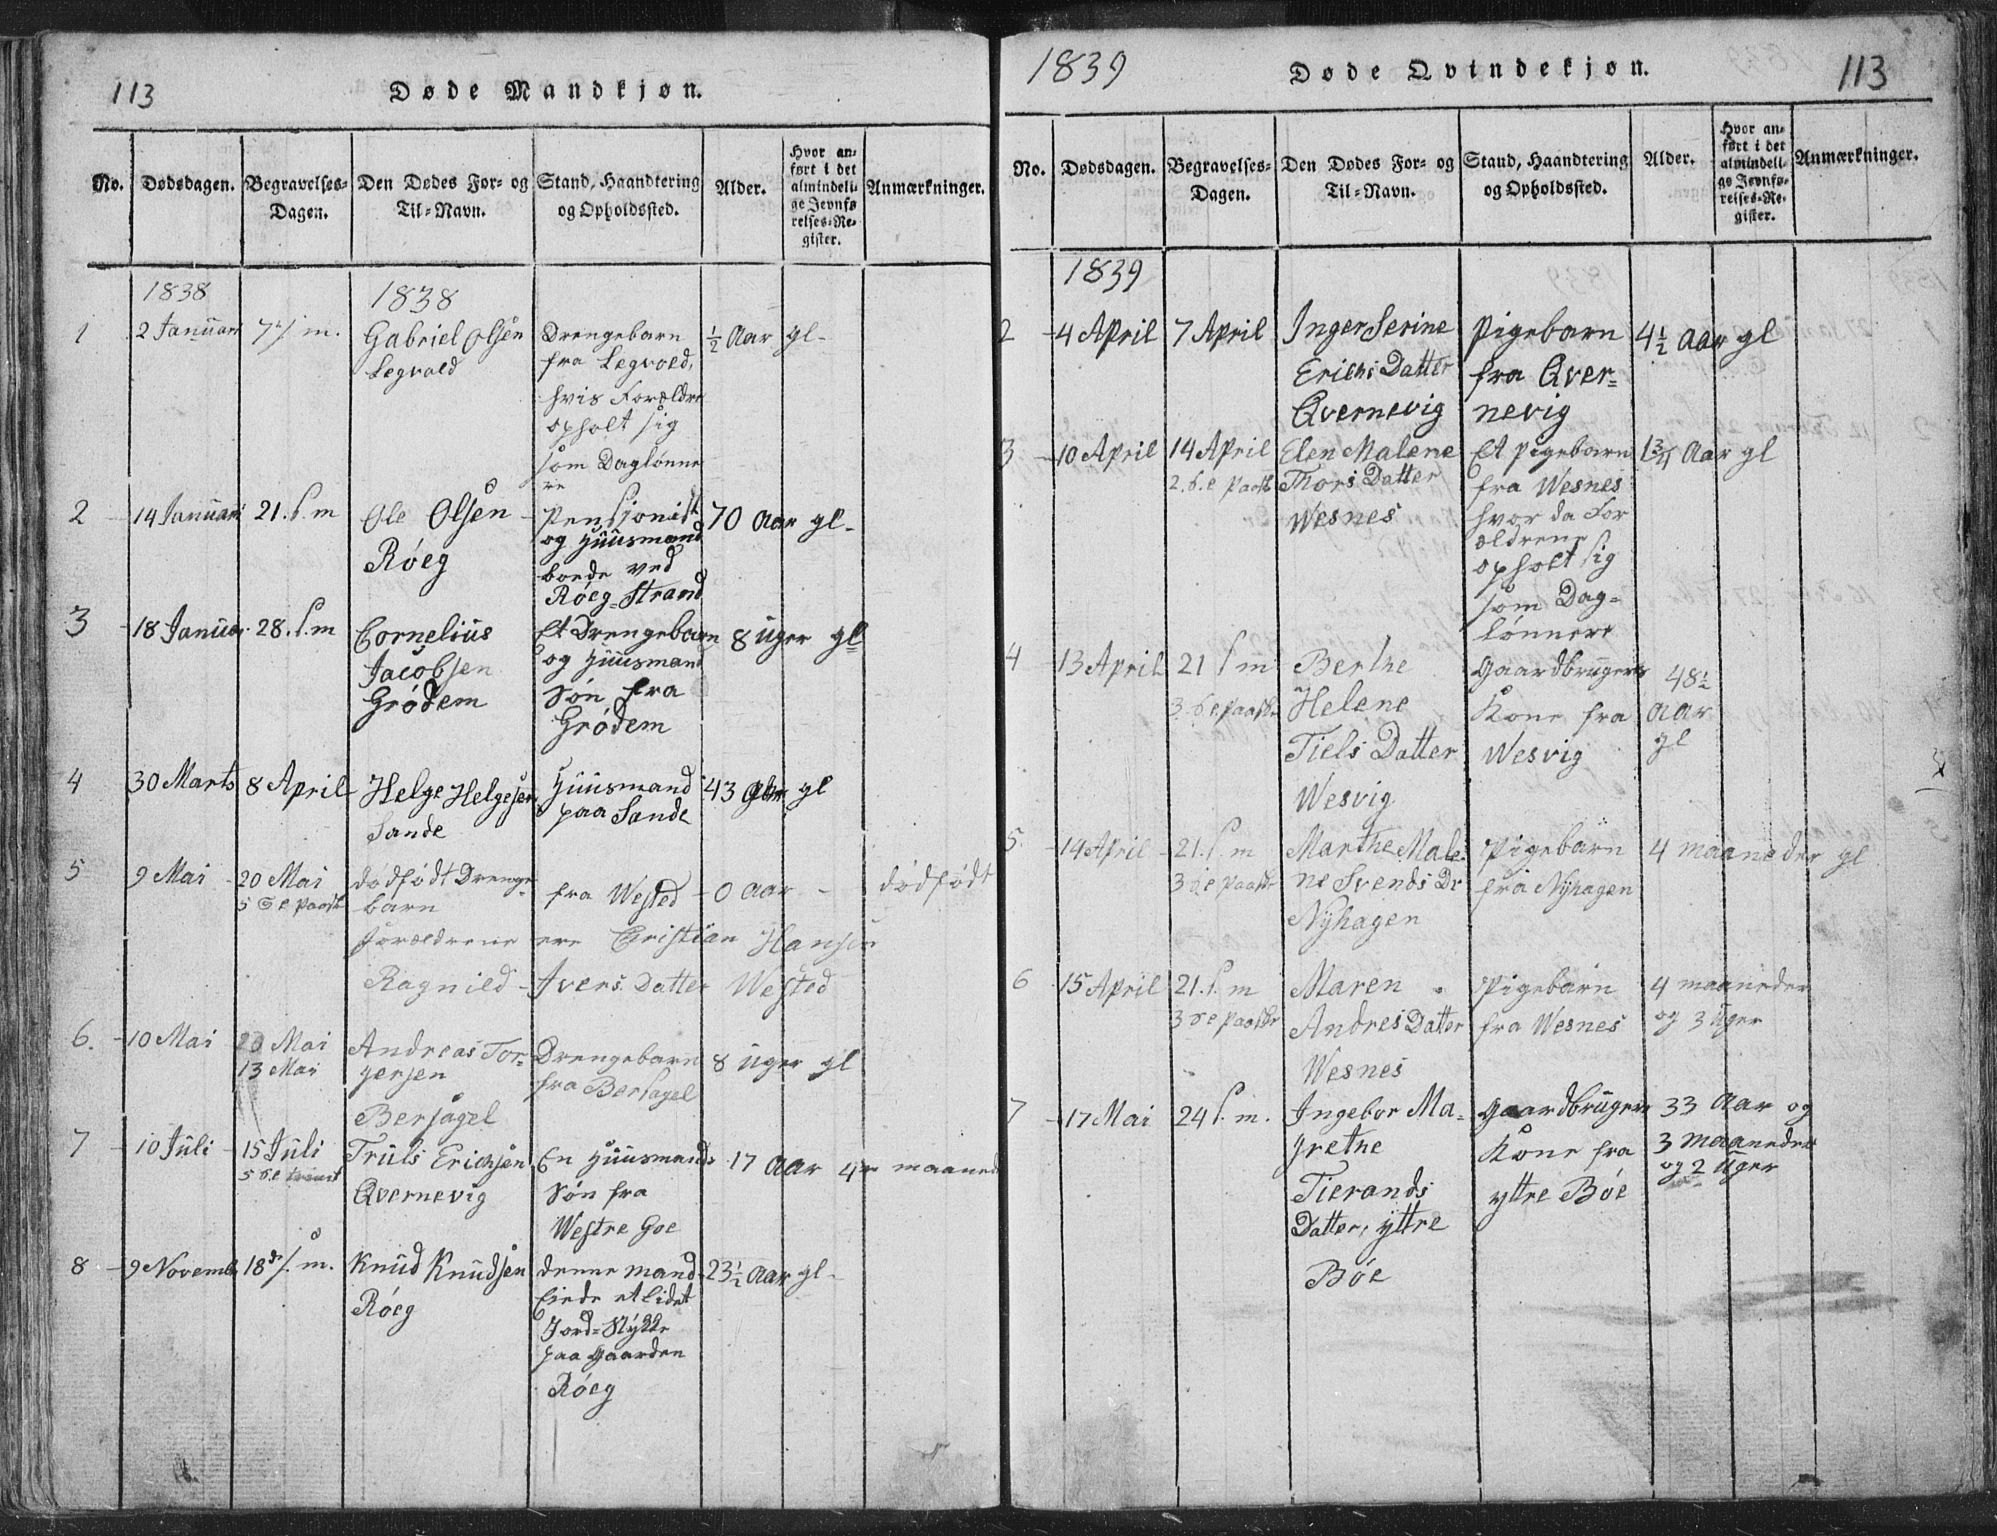 113
Døde Mandkjøn.
No.
Dødsdagen.
Begravelses-
Dagen.
Den Dødes For- og
Til-Navn.
Stand, Haandtering
og Opholdssted.
Alder.
Hvor an-
ført i det
almindeli-
ge Jevnfø
relses-Re-
gister.
Anmærkninger.
1838
1838
1
2 Januari
7 s. m.
Gabriel Olsen
Legvold
Drengebarn
fra Legvold,
hvis Forældre
opholt sig
som Daglønne
re
1/2 Aar gl-
2
14 Januari
21. s. m
Ole Olsen
Röeg
Pensjonist
og Huusmand
boede ved
Röeg-Strand
70 Aar gl-
3
18 Januar
28. s. m
Cornelius
Jacobsen
Grödem
Et Drengebarn
og Huusmand
Sön fra
Grödem
8 Uger gl
4
30 Marts
8 April
Helge Helgesen
Sande
Huusmand
paa Sande
43 Aar gl
5
9 Mai
20 Mai
5 S e Paask
dödfödt Drenge-
barn
fra Wested
0 aar -
dödfödt
Foreldrene ere Cristian Hansen
Ragnild Ivers Datter Wested
6.
10 Mai
20 Mai
13 Mai
Andreas Tor-
gersen
Bersagel
Drengebarn
fra Bersagel
8 Uger gl
7
10 Juli
15 Juli
5 S. e trinit
Truls Erichsen
Qvernevig
En Huusmands
Sön fra
Westre Goe
17 Aar 4r maaned
8
9 Novemb
18de s. m.
Knud Knudsen
Röeg
denne mand
Eiede et lidet
Jord-Stykke
paa Gaarden
Röeg
23 1/2 Aar gl-
1839
Døde Qvindekjøn.
113
No.
Dødsdagen.
Begravelses-
Dagen.
Den Dødes For- og
Til-Navn.
Stand, Haandtering
og Opholdssted.
Alder.
Hvor an-
ført i det
almindeli-
ge Jevnfø-
relses-Re-
gister.
Anmærkninger.
1839
2
4 April
7 April
Inger Serine
Erichs Datter
Qvernevig
Pigebarn
fra Qver-
nevig
4 1/2 Aar gl
3
10 April
14 April
2. S. e Paask
Elen Malene
Thors Datter
Wesnes
Et Pigebarn
fra Wesnes
hvor da For
ældrene
opholt sig
som Dag-
lönnere
1 3/4 Aar gl
4
13 April
21 s m
3 S e Paaske
Berthe
Helene
Tiels Datter
Wesvig
Gaardbrugers
Kone fra
Wesvig
48 1/2
Aar
gl
5
14 April
21. s. m
3 S e Paaske
Marthe Male-
ne Svends Dr
Nyhagen
Pigebarn
fra Nyhagen
4 maaneder gl
6
15 April
21. s. m
3 S e Paaske
Maren
Andres Datter
Wesnes
Pigebarn
fra Wesnes
4 maaneder
og 3 Uger
7
17 Mai
24 s. m.
Ingebor Ma-
grethe
Tierands
Datter, yttre
Böe
Gaardbrugers
Kone fra
yttre Böe
33 Aar og
3 maaneder
og 2 Uger